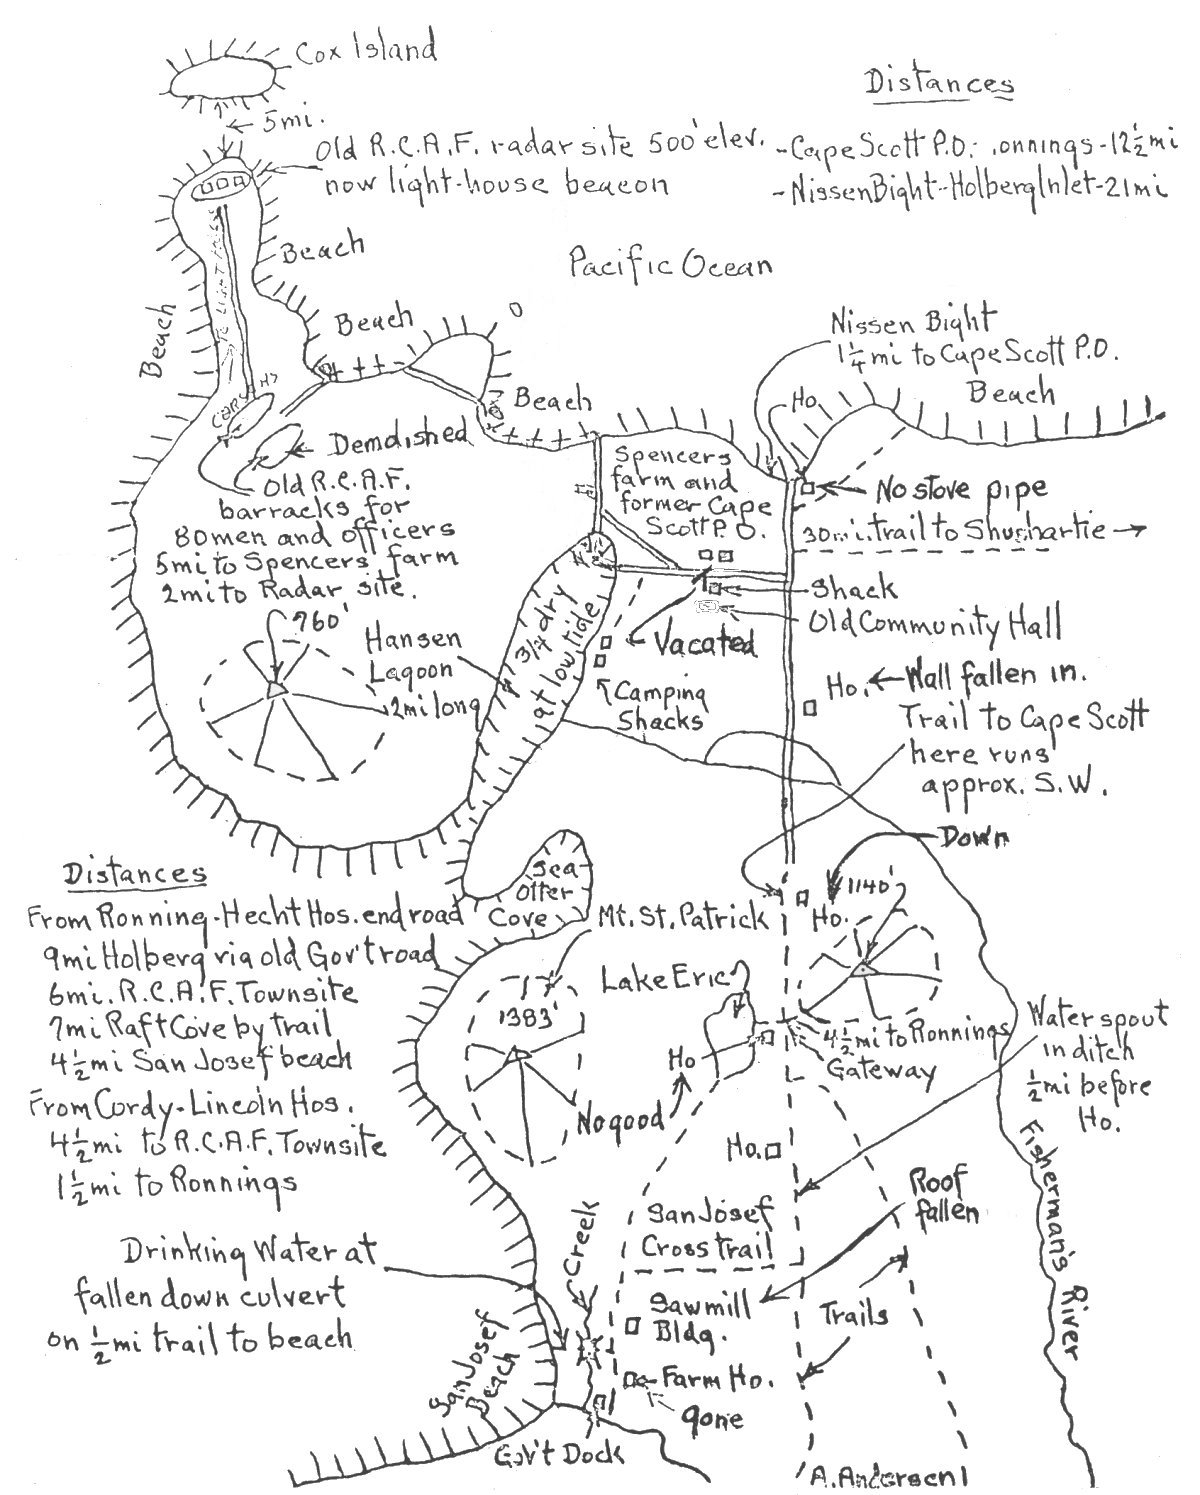 Cox Island
5mi.
Old R.C.A.F. radar site 500' elev.
now light-house beacon
Distances
-Cape Scott P.O.- onnings-12½mi
-Nissen Bight-Holberg Inlet-21mi
Beach
Pacific Ocean
Beach
Beach
Nissen Bight
1¼mi to Cape Scott P.O.
Beach
Ho.
Beach
Demolished
Old R.C.A.F.
barracks for
80men and officers
5mi to Spencers farm
2mi to Radar site.
Spencers
farm and
former Cape
Scott P.O.
No stove pipe
30mi. trail to Shushartie
Shack
Old Community Hall
Vacated
760'
Hansen
Lagoon
2mi long
3/4 dry
at low tide
Camping
Shacks
Ho. Wall fallen in.
Trail to Cape Scott
here runs
approx. S.W.
Down
1140'
Ho.
Distances
From Ronning-Hecht Hos. end road
9mi Holberg via old Gov't road
6mi. R.C.A.F. Townsite
7mi Raft Cove by trail
4½mi San Josef beach
From Cordy-Lincoln Hos.
4½mi to R.C.A.F. Townsite
1½mi to Ronnings
Sea
Otter
Cove
Mt. St. Patrick
1383'
Lake Eric
Ho
No good
4½mi to Ronnings
Gateway
Water spout
in ditch
½mi before
Ho.
Ho.
San Josef
Cross trail
Roof
fallen
Fisherman's River
Creek
Drinking Water at
fallen down culvert
on ½mi trail to beach
Sawmill
Bldg.
Trails
San Josef
Beach
Farm Ho.
gone
Gov't Dock
A. Andersen